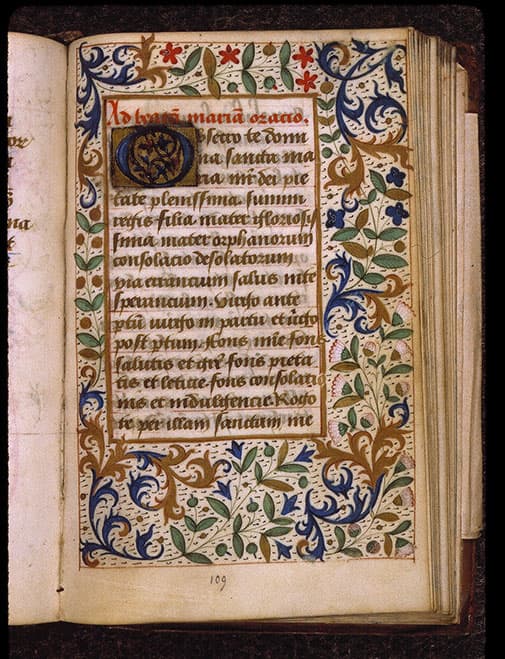 Ad beatā mariā oracio.
Obsecro te domi
na sancta ma
ria mr̄ dei pie
tate plenissima. summi
regis filia mater gloriosis
sima mater orphanorum
consolacio desolatorum
via errancium salus in te
sperancium. Virgo ante
ptū uirgo in partu et uirgo
post ptum. Fons mīe fons
salutis et grē fons pieta
tis et leticie. fons consolatio
nis et indulgencie. Rogo
te per illam sanctam ine
109